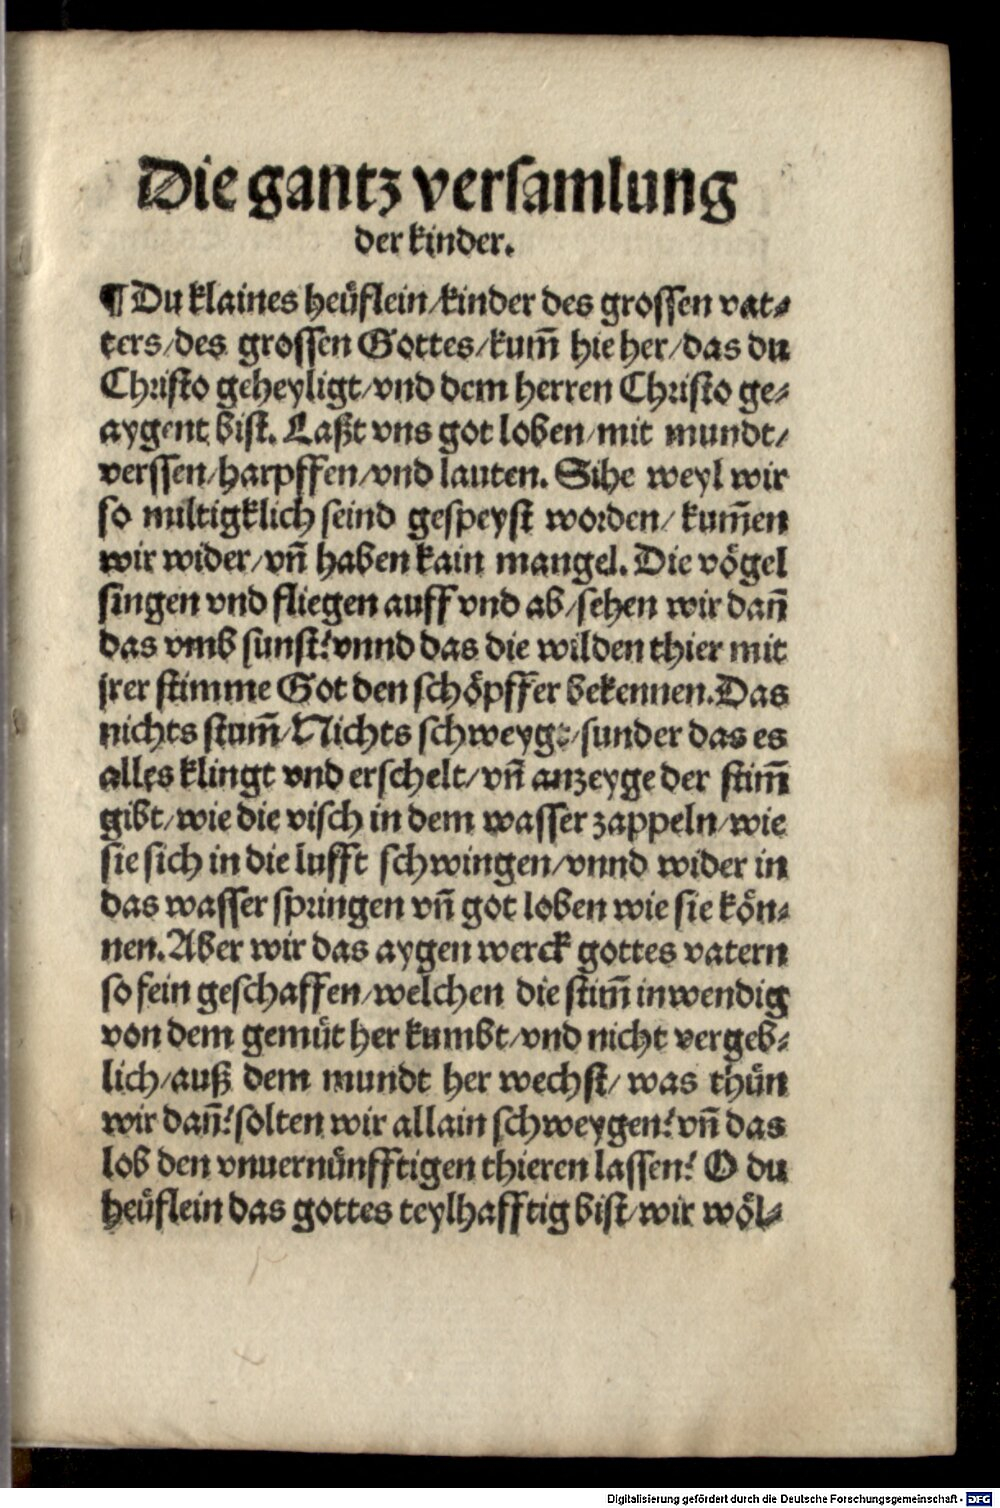 Die gantz versamlung
der kinder.
¶ Du klaines heüflein/kinder des grossen vat⸗
ters/des grossen Gottes/kum̃ hie her/das du
Christo geheyligt/vnd dem herren Christo ge⸗
aygent bist. Laßt vns got loben/mit mundt/
verssen/harpffen/vnd lauten. Sihe weyl wir
so miltigklich seind gespeyst worden/kum̃en
wir wider/vñ haben kain mangel. Die vögel
singen vnd fliegen auff vnd ab/sehen wir dañ
das vmb sunst? vnnd das die wilden thier mit
jrer stimme Got den schöpffer bekennen. Das
nichts stum̃/Nichts schweygt/sunder das es
alles klingt vnd erschelt/vñ anzeyge der stim̃
gibt/wie die visch in dem wasser zappeln/wie
sie sich in die lufft schwingen/vnnd wider in
das wasser springen vñ got loben wie sie kön⸗
nen. Aber wir das aygen werck gottes vatern
so fein geschaffen/welchen die stim̃ inwendig
von dem gemüt her kumbt/vnd nicht vergeb⸗
lich/auß dem mundt her wechst/was thün
wir dañ? solten wir allain schweygen? vñ das
lob den vnuernünfftigen thieren lassen? O du
heüflein das gottes teylhafftig bist/wir wöl⸗
Digitalisierung gefördert durch die Deutsche Forschungsgemeinschaft - DFG